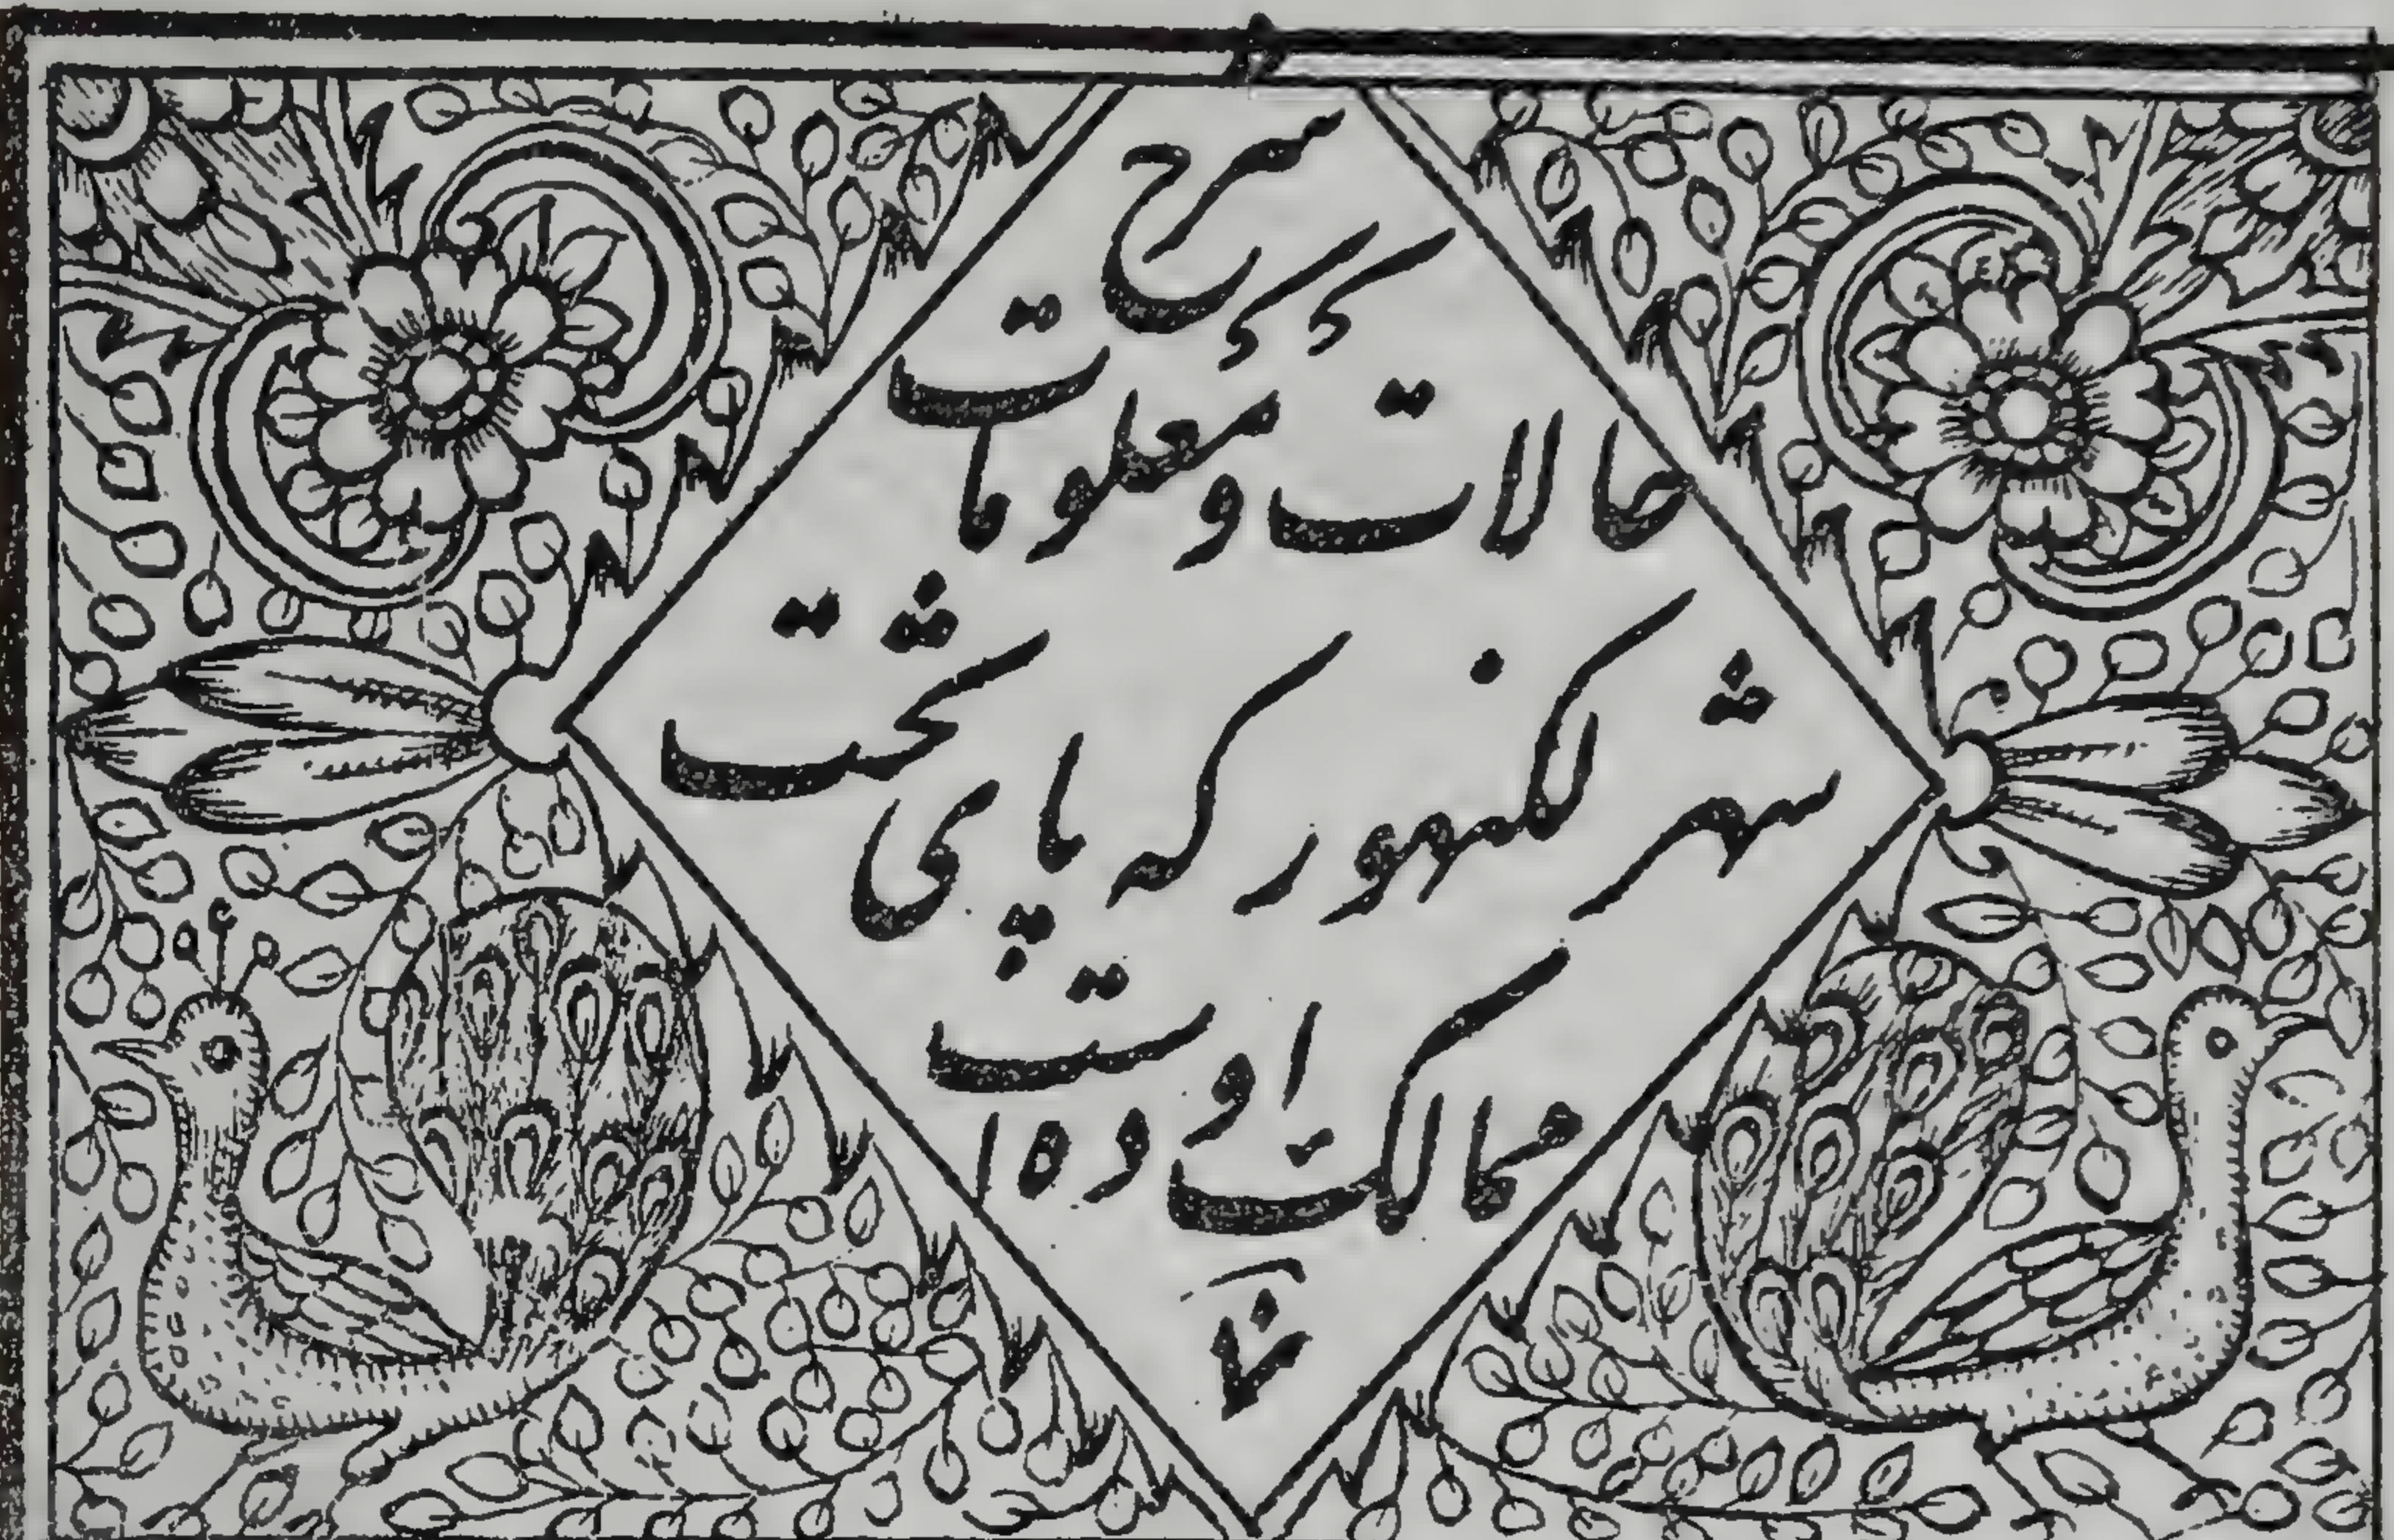 سرح
حالات و معلومات
شهر لکنهور که پای تخت
ممالکت اوده است